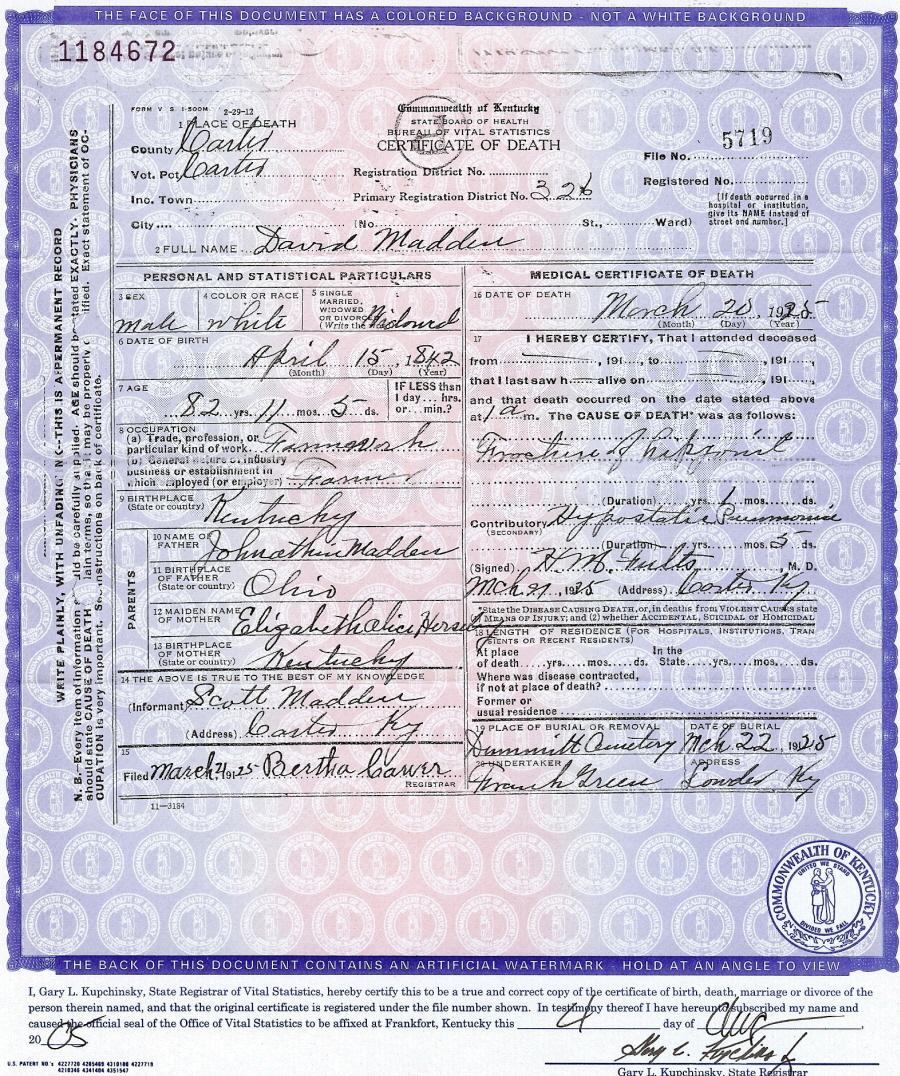 THE FACE OF THIS DOCUMENT HAS A COLORED BACKGROUND - NOT A WHITE BACKGROUND
1184672
FORM V. S. 1-500M 2-29-12
Commonwealth of Kentucky
STATE BOARD OF HEALTH
BUREAU OF VITAL STATISTICS
CERTIFICATE OF DEATH
1 PLACE OF DEATH
County Carter
Vot. Pct. Carter
Inc. Town
City
Registration District No.
Primary Registration District No. 326
(No. St., Ward)
File No. 5719
Registered No.
[If death occurred in a
hospital or institution,
give its NAME instead of
street and number.]
2 FULL NAME David Madden
PERSONAL AND STATISTICAL PARTICULARS
3 SEX
male
4 COLOR OR RACE
white
5 SINGLE
MARRIED,
WIDOWED
OR DIVORCED
(Write the word) Widowed
6 DATE OF BIRTH
April 15, 1842
(Month) (Day) (Year)
7 AGE
82 yrs. 11 mos. 5 ds.
IF LESS than
1 day... hrs.
or... min.?
8 OCCUPATION
(a) Trade, profession, or
particular kind of work Farmwork
(b) General nature of industry
business or establishment in
which employed (or employer) Farmer
9 BIRTHPLACE
(State or country)
Kentucky
PARENTS
10 NAME OF
FATHER Johnathin Madden
11 BIRTHPLACE
OF FATHER
(State or country) Ohio
12 MAIDEN NAME
OF MOTHER Elizabeth alice
13 BIRTHPLACE
OF MOTHER
(State or country) Kentucky
14 THE ABOVE IS TRUE TO THE BEST OF MY KNOWLEDGE
(Informant) Scott Madden
(Address) Carter Ky
15
Filed March 21 1925 Bertha
REGISTRAR
11-3184
MEDICAL CERTIFICATE OF DEATH
16 DATE OF DEATH
March 20, 1925
(Month) (Day) (Year)
17 I HEREBY CERTIFY, That I attended deceased
from , 191 , to , 191 ,
that I last saw h alive on , 191 ,
and that death occurred on the date stated above
at 1 a m. The CAUSE OF DEATH* was as follows:
Fracture of hip joint
(Duration) yrs. 1 mos. ds.
Contributory Hypostatic Pneumonia
(SECONDARY)
(Duration) yrs. mos. 5 ds.
(Signed) H. M. Fults, M. D.
Mch 1925 (Address) Carter Ky.
*State the DISEASE CAUSING DEATH, or, in deaths from VIOLENT CAUSES state
MEANS OF INJURY; and (2) whether ACCIDENTAL, SUICIDAL OR HOMICIDAL
18 LENGTH OF RESIDENCE (FOR HOSPITALS, INSTITUTIONS, TRAN
SIENTS OR RECENT RESIDENTS)
At place In the
of death yrs. mos. ds. State yrs. mos. ds.
Where was disease contracted,
if not at place of death?
Former or
usual residence
19 PLACE OF BURIAL OR REMOVAL
Dummitt Cemetary
DATE OF BURIAL
Mch 22, 1925
20 UNDERTAKER
Frank Green
ADDRESS
Lowder Ky
WRITE PLAINLY, WITH UNFADING INK--THIS IS A PERMANENT RECORD
COMMONWEALTH OF KENTUCKY
UNITED WE STAND
DIVIDED WE FALL
THE BACK OF THIS DOCUMENT CONTAINS AN ARTIFICIAL WATERMARK HOLD AT AN ANGLE TO VIEW
I, Gary L. Kupchinsky, State Registrar of Vital Statistics, hereby certify this to be a true and correct copy of the certificate of birth, death, marriage or divorce of the
person therein named, and that the original certificate is registered under the file number shown. In testimony thereof I have hereunto subscribed my name and
caused the official seal of the Office of Vital Statistics to be affixed at Frankfort, Kentucky this 4 day of Aug,
20 05
Gary L. Kupchinsky, State Registrar
U.S. PATENT NO's 4227720 4265469 4310180 4227719
4210346 4341404 4351547